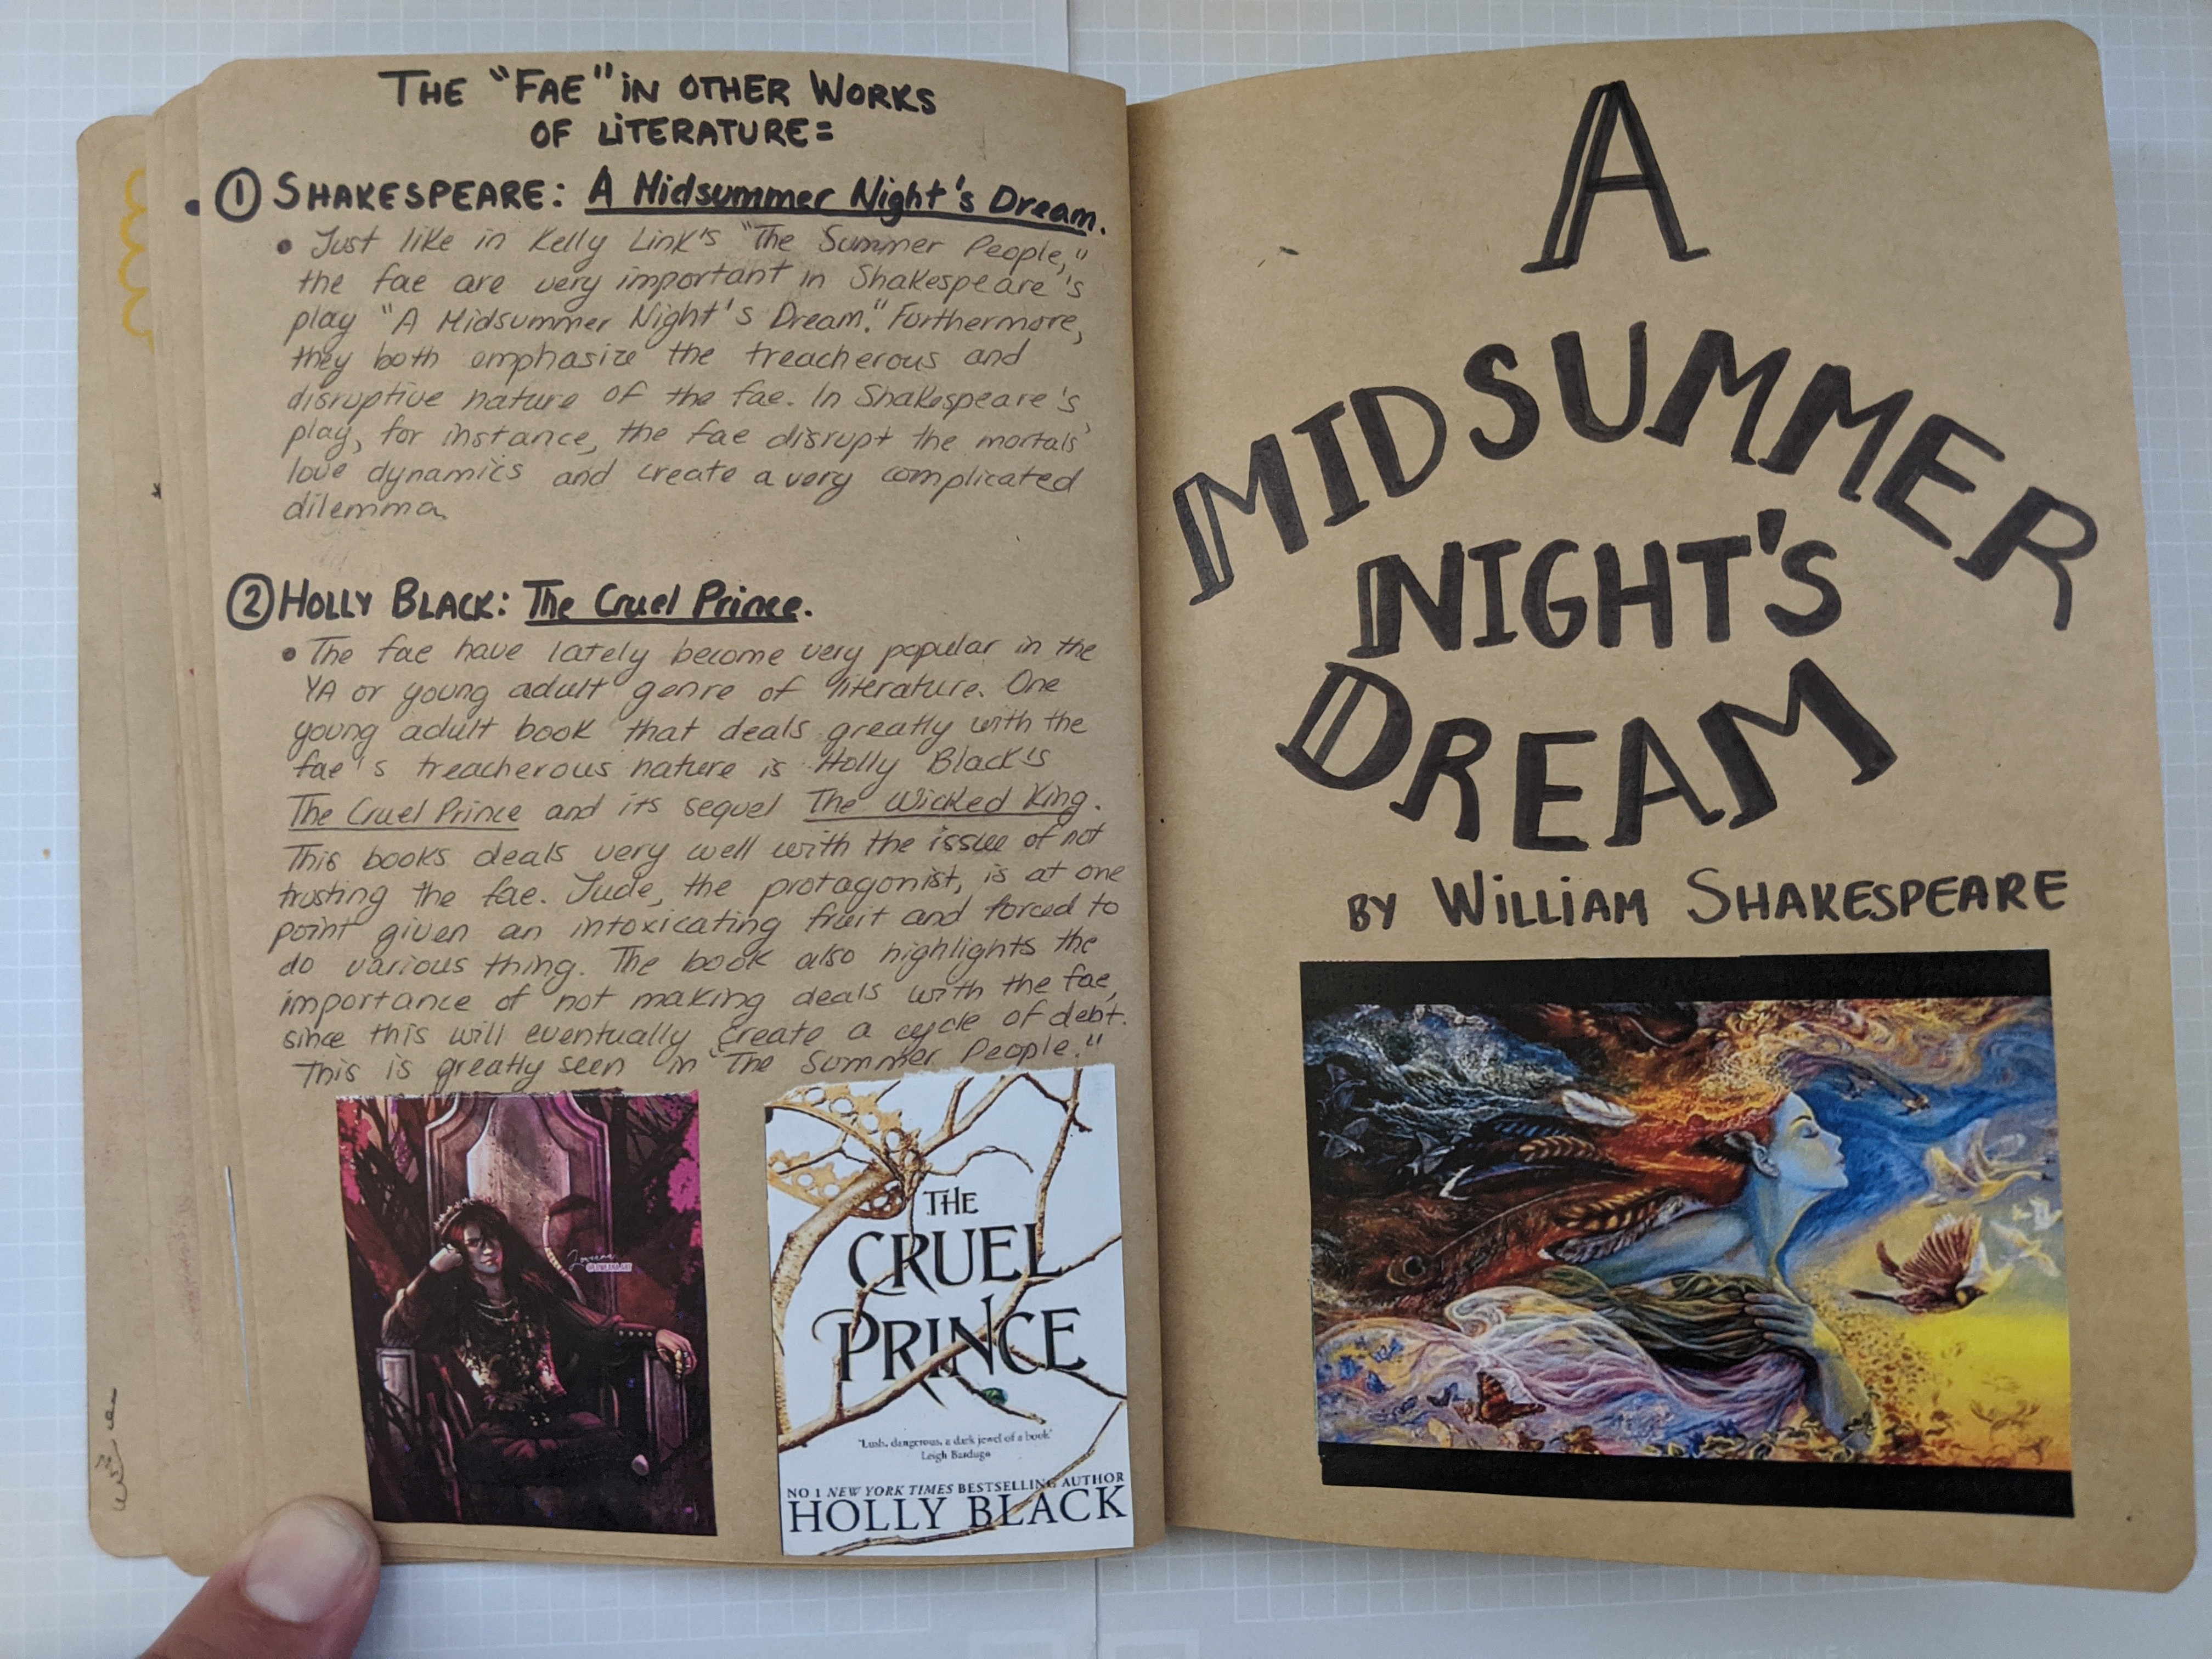 THE "FAE" IN OTHER WORKS
OF LITERATURE=
① SHAKESPEARE: A Midsummer Night's Dream.
• Just like in Kelly Link's "The Summer People,"
the fae are very important in Shakespeare's
play "A Midsummer Night's Dream." Furthermore,
they both emphasize the treacherous and
disruptive nature of the fae. In Shakespeare's
play, for instance, the fae disrupt the mortals'
love dynamics and create a very complicated
dilemma.
② HOLLY BLACK: The Cruel Prince.
• The fae have lately become very popular in the
YA or young adult genre of literature. One
young adult book that deals greatly with the
fae's treacherous nature is Holly Black's
The Cruel Prince and its sequel The Wicked King.
This books deals very well with the issue of not
trusting the fae. Jude, the protagonist, is at one
point given an intoxicating fruit and forced to
do various thing. The book also highlights the
importance of not making deals with the fae,
since this will eventually create a cycle of debt.
This is greatly seen in "The Summer People."
THE
CRUEL
PRINCE
'Lush, dangerous, a dark jewel of a book'
Leigh Bardugo
NO 1 NEW YORK TIMES BESTSELLING AUTHOR
HOLLY BLACK
A
MIDSUMMER
NIGHT'S
DREAM
BY WILLIAM SHAKESPEARE